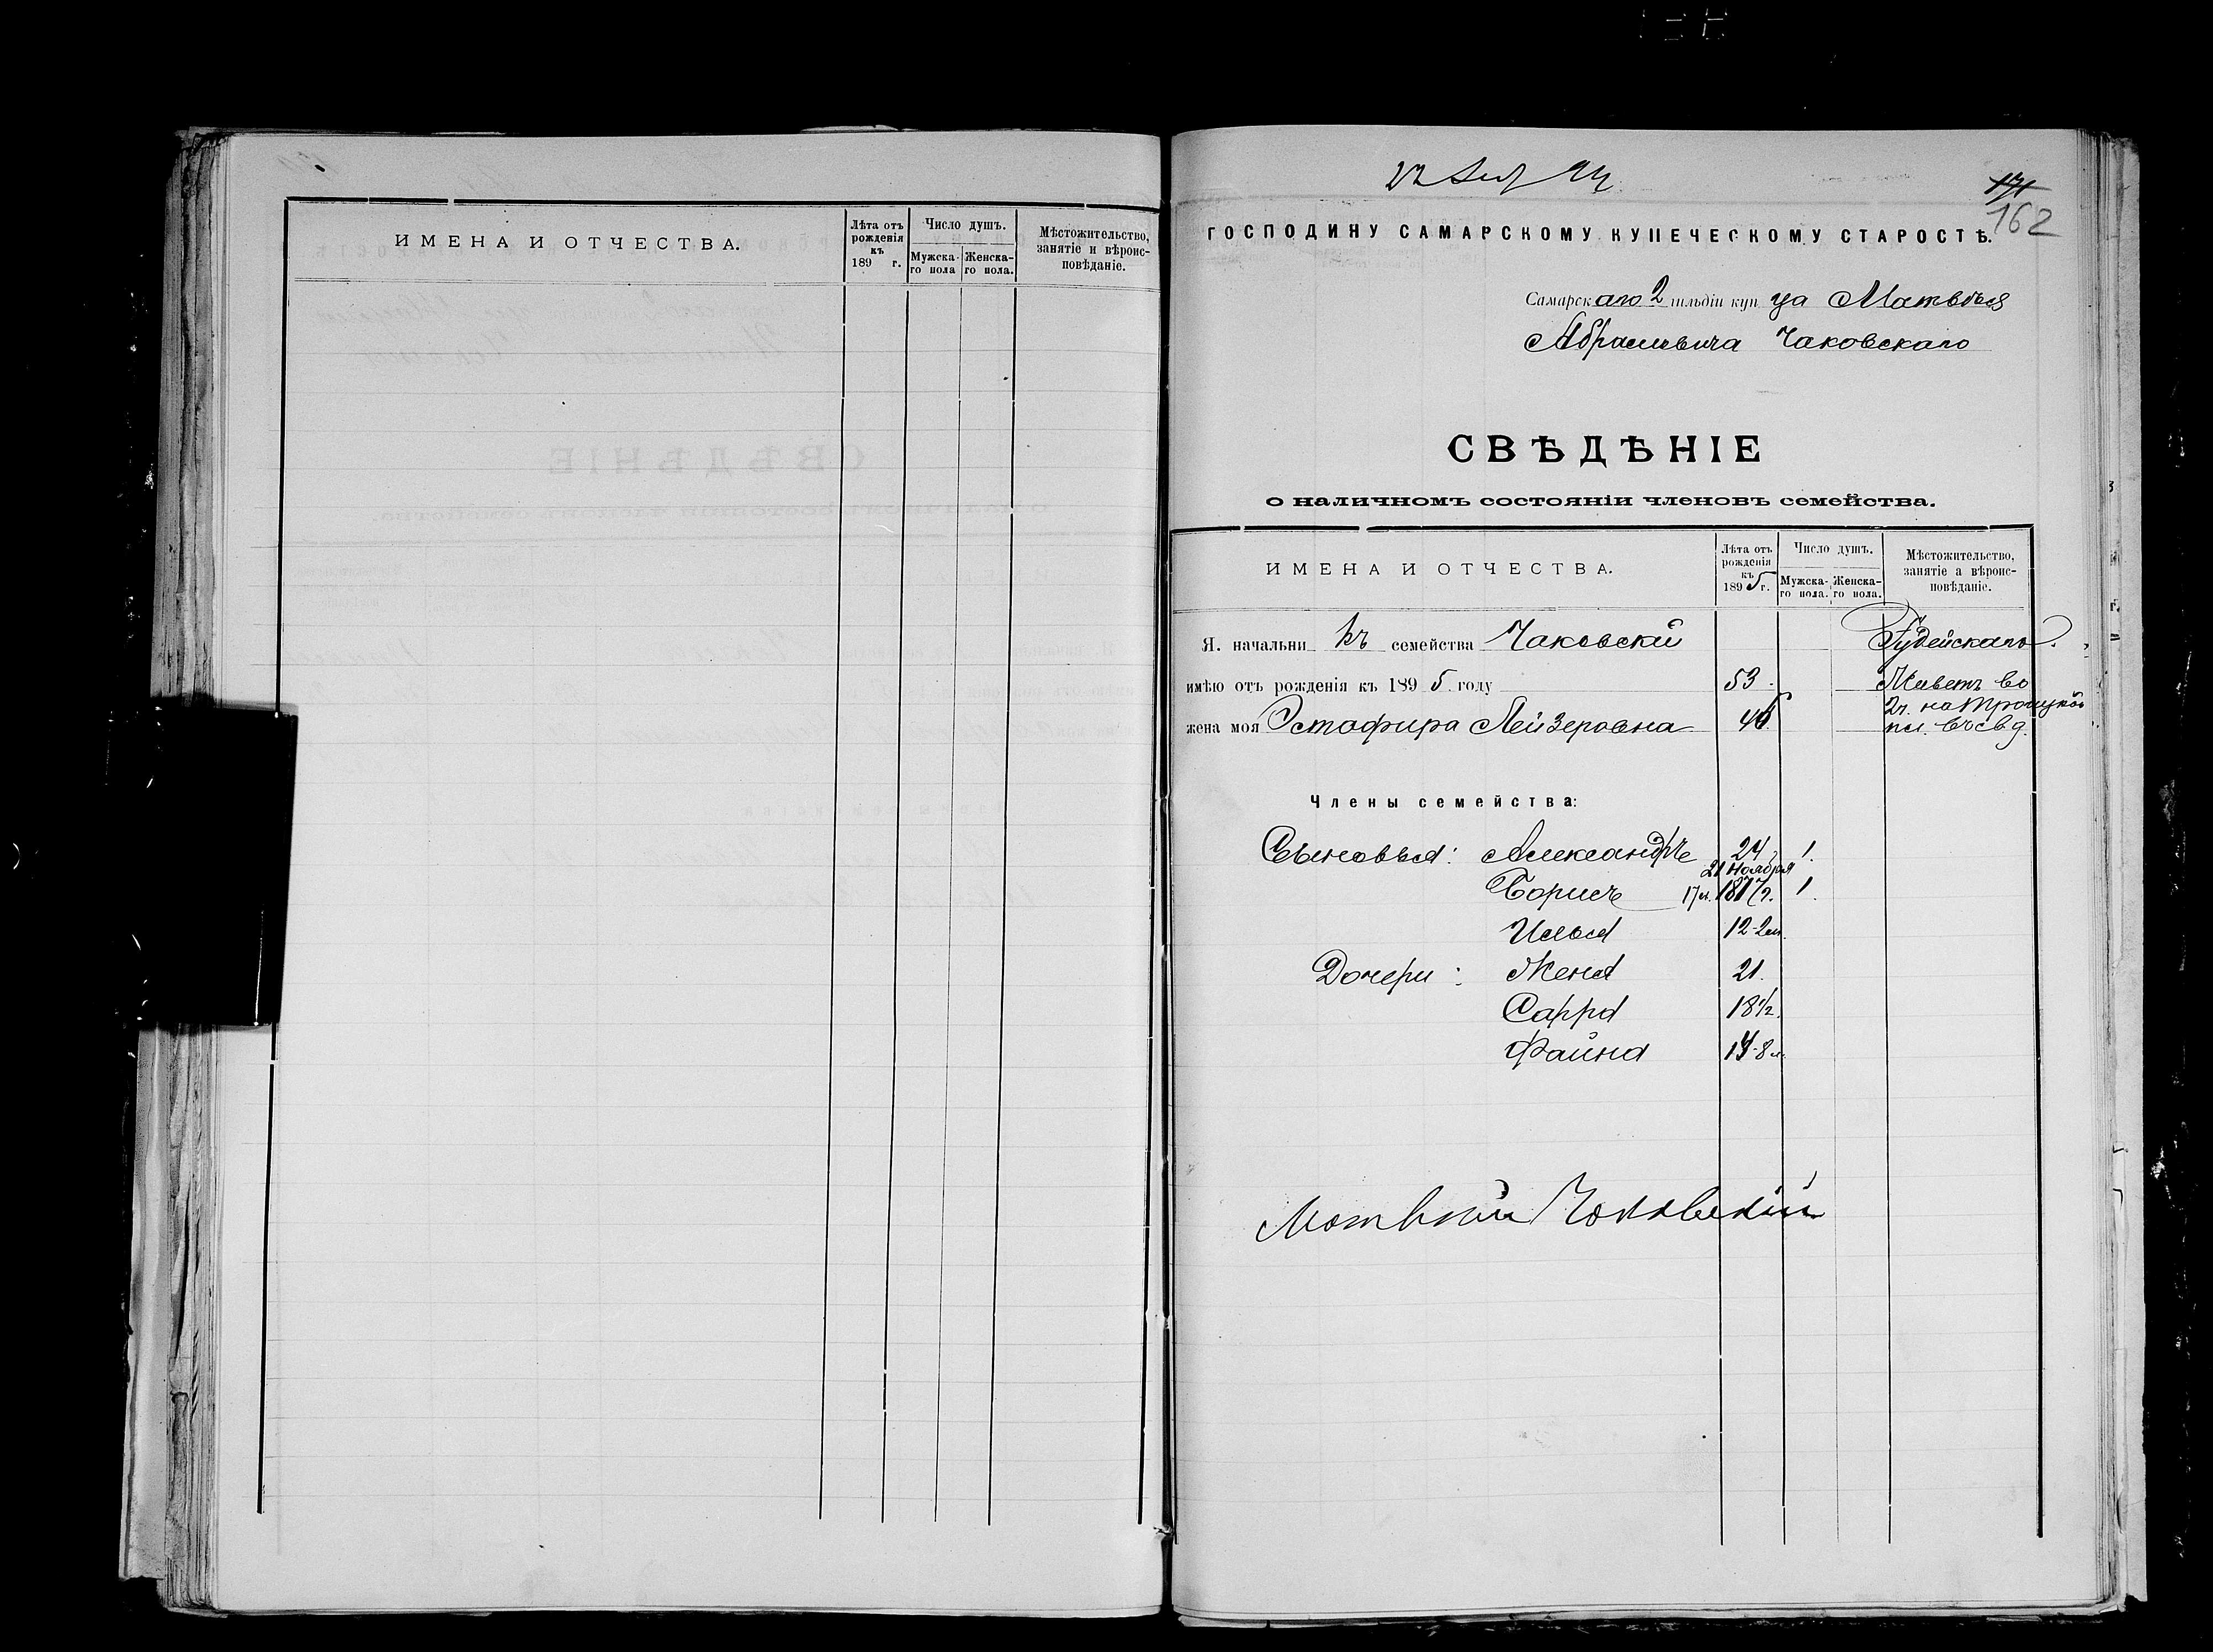 ИМЕНА И ОТЧЕСТВА.
Лѣта отъ рожденія къ 189 г.
Число душъ.
Мужска-го пола
Женска-го пола.
Мѣстожительство, занятіе и вѣроис-повѣданіе.
171
162
ГОСПОДИНУ САМАРСКОМУ КУПЕЧЕСКОМУ СТАРОСТѢ.
Самарскаго 2 гильдіи купца Матвѣя
Абрамовича Чаковскаго
СВѢДѢНІЕ
о наличномъ состояніи членовъ семейства.
ИМЕНА И ОТЧЕСТВА.
Лѣта отъ рожденія къ 1895 г.
Число душъ.
Мужска-го пола.
Женска-го пола.
Мѣстожительство, занятіе а вѣроис-повѣданіе.
Я. начальникъ семейства Чаковскій Іудейскаго.
имѣю отъ рожденія къ 1895 году 53. Живетъ во
2 ч. на Троицкой
жена моя Эстафира Лейзеровна 46. пл. въ св д.
Члены семейства:
Сыновья: Александръ 24 1.
21 Ноября
Борисъ 17 л. 1877 г. 1.
Илья 12-2 м.
Дочери: Женя 21.
Сарра 18 1/2.
Файна 14-8 м.
Матвѣй Чаковскій